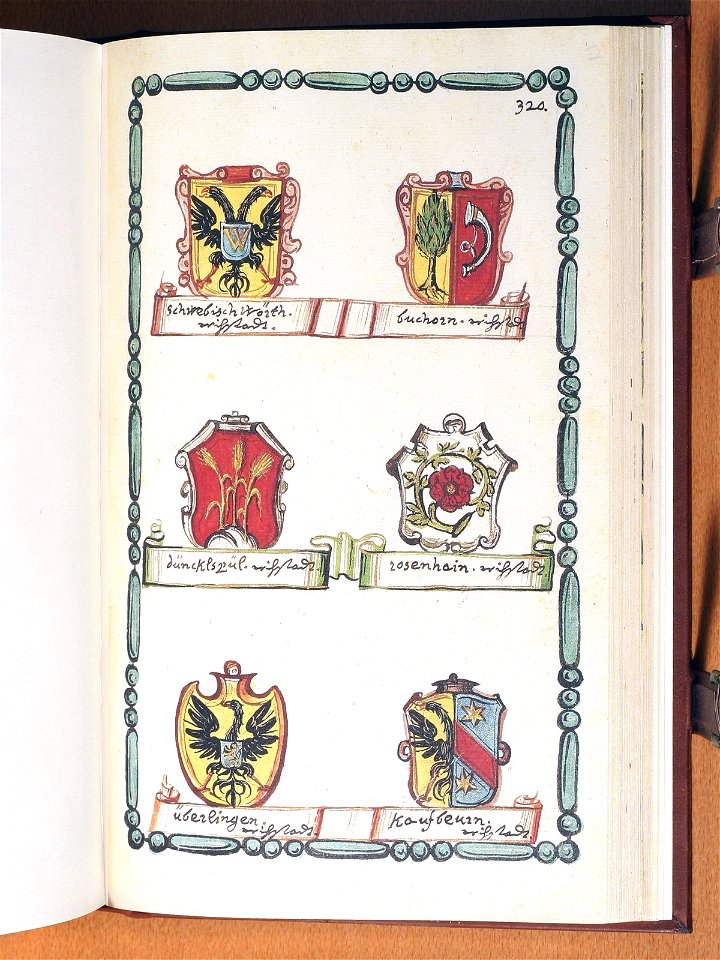 320.
W
schwebisch Wörth.
reichsstadt.
buchorn. reichsstadt
düncklspül. reichsstadt
rosenhain. reichsstadt
überlingen.
reichsstadt
Kaufbeurn.
reichsstadt